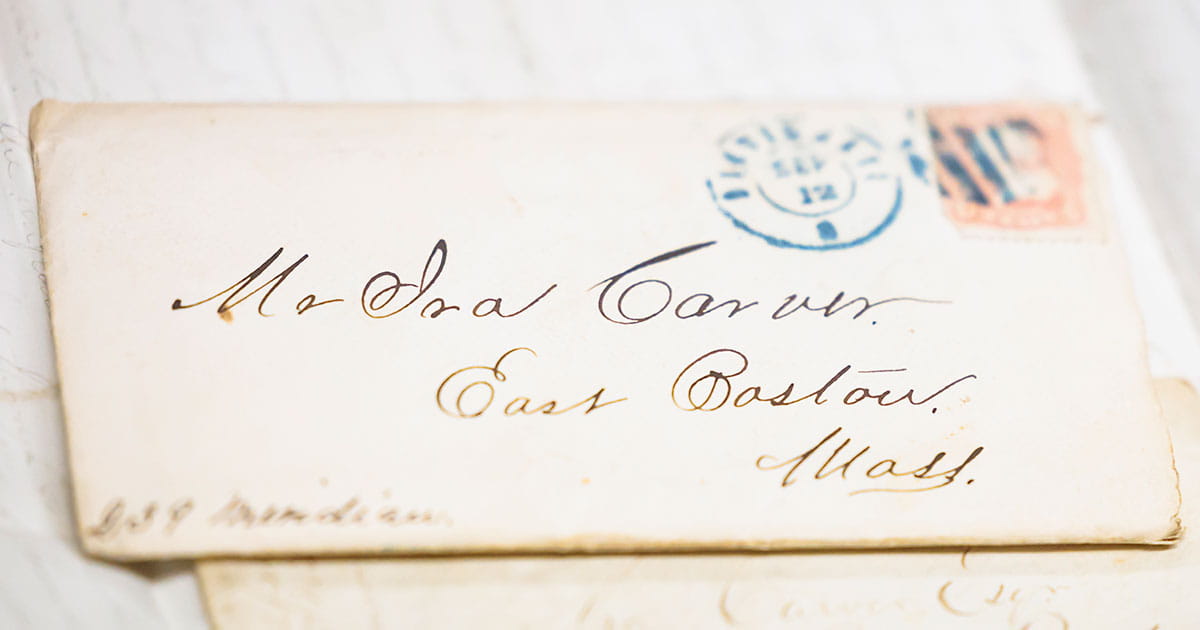 SEP
12
Mr Ira Carver.
East Boston.
Mass.
239 Meridian.
Carver Esqr